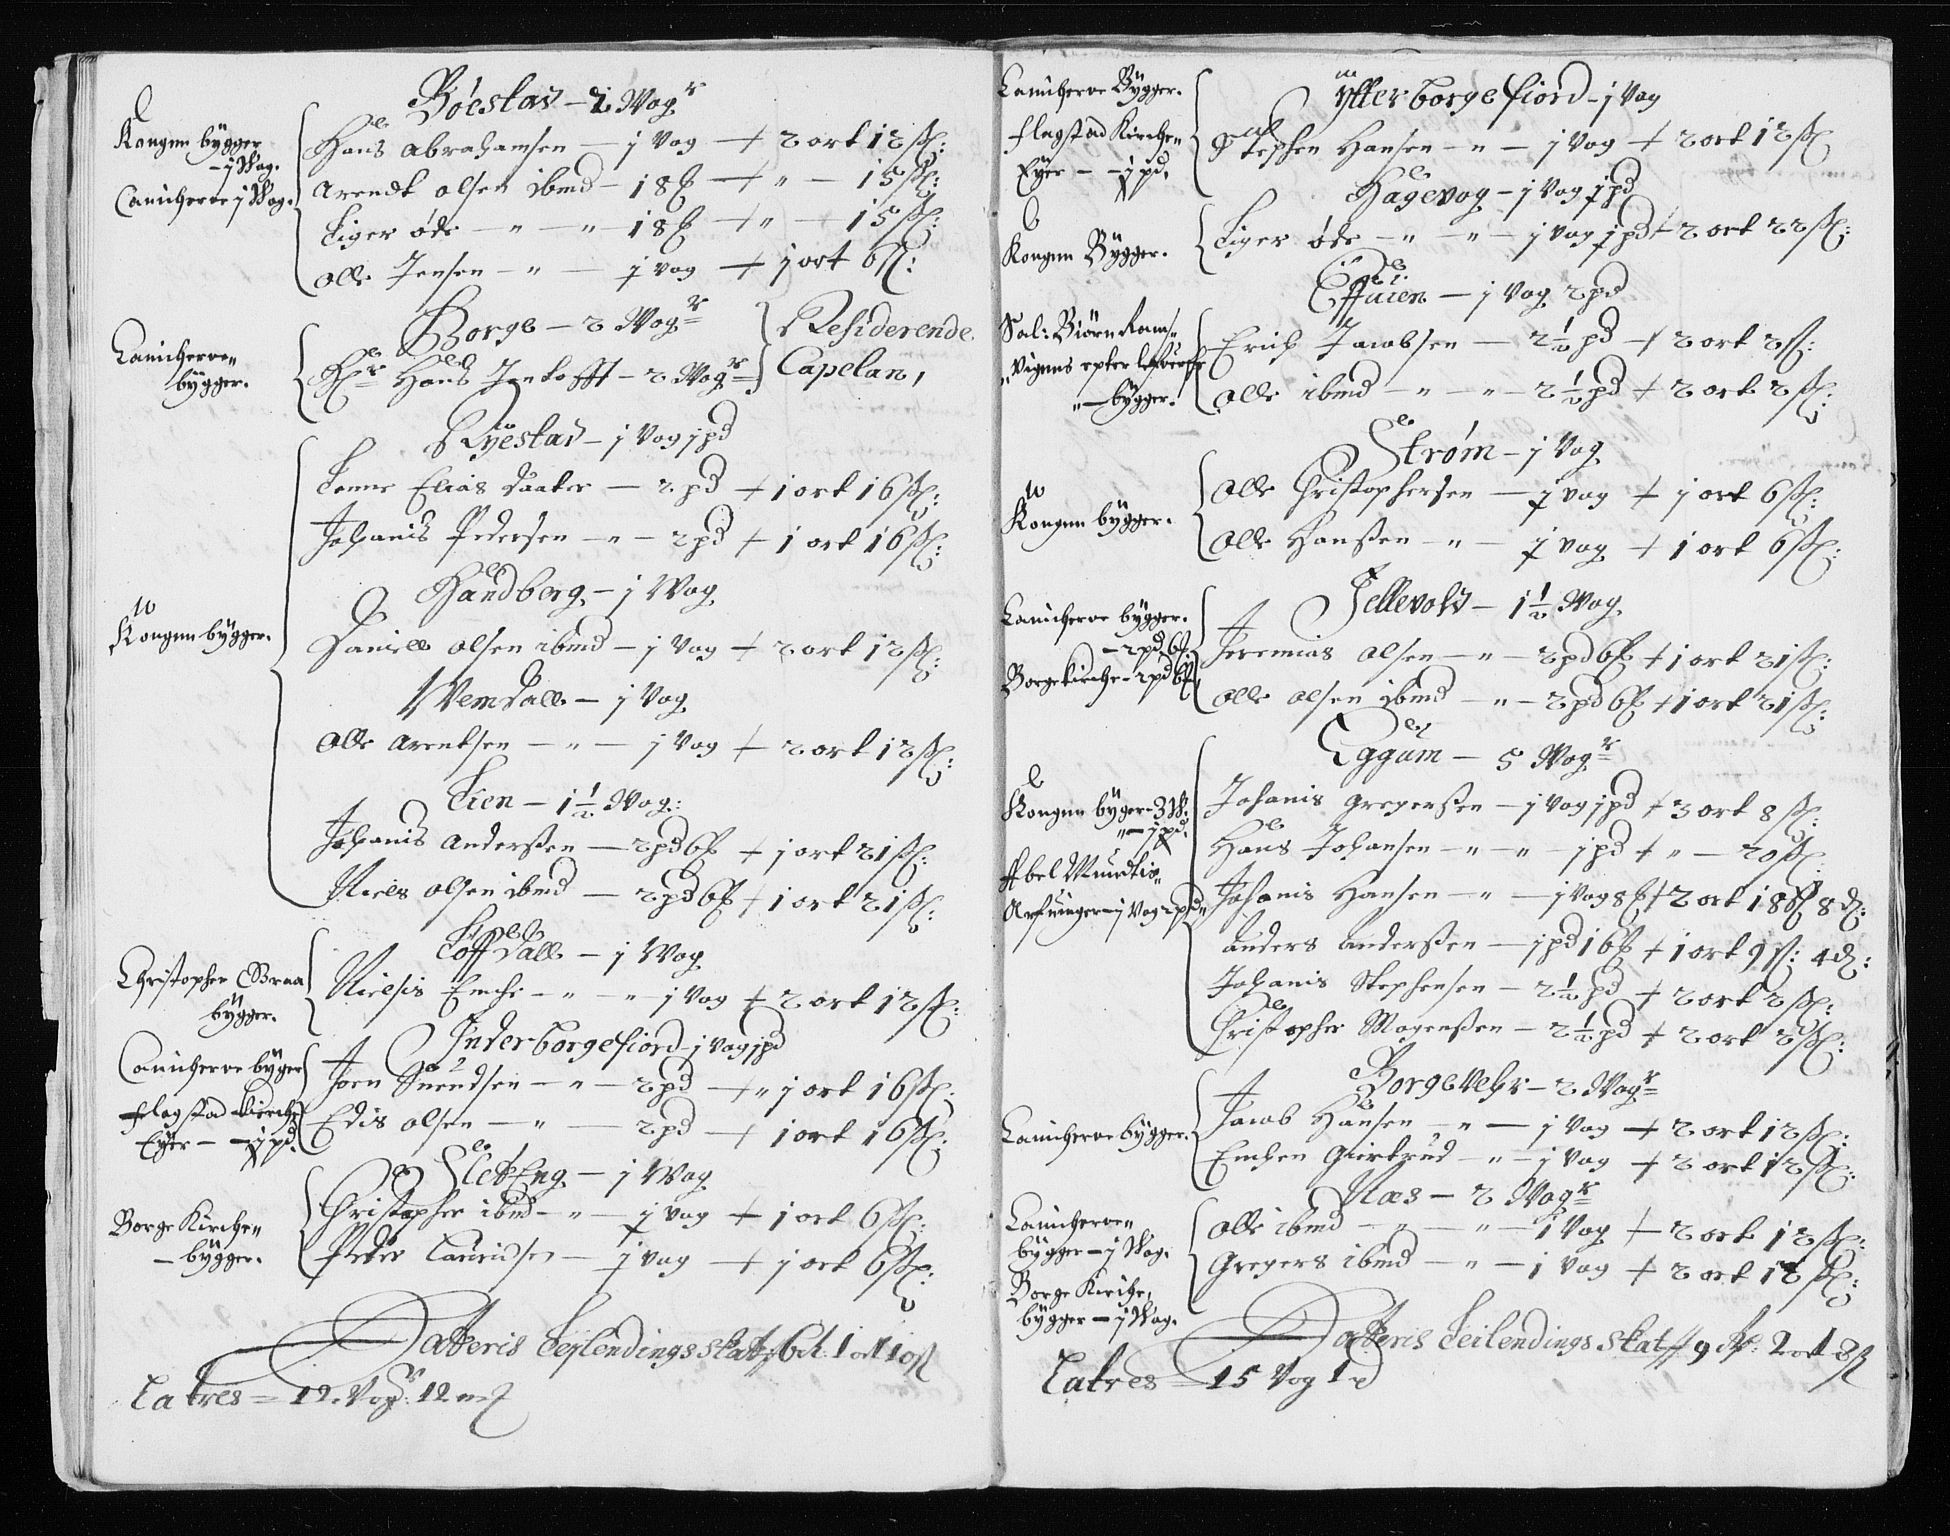 Bøestad – 2 Wog.r
Kongen bygger
– j Wog.
Canicherne j Wog.
Hans Abrahamsen – j Vog + 2 ort 12 ß:
Arendt Olsen ibmd – 18 # + " – 15 ß:
Liger øde – " – " 18 # + " – 15 ß:
Olle Jensen – " – ½ vog + j ort 6 ß:
Borge – 2 Wog.r
Canicherne
bygger.
Hr Hans Jentofft – 2 Wog.r
Residerende
Capelan,
Ryestad – j Vog j pd
Lenns Elias Daater – 2 pd + 1 ort 16 ß:
Johanis Pedersen – " – 2 pd + 1 ort 16 ß:
Handberg – j Wog
Kongen bygger.
Daniell Olsen ibmd – j Vog + 2 ort 12 ß:
Wemdall – j Vog
Olle Arentsen – " – j Vog + 2 ort 12 ß:
Lien – 1½ Wog:
Johanis Anderssen – 2 pd 6 # + j ort 21 ß:
Niels Olsen ibmd – 2 pd 6 # + 1 ort 21 ß:
Loffdall – j Wog
Christopher Braa
bygger.
Nielsis Enche – " – " – j Vog + 2 ort 12 ß:
Inderborgefiord – j Vog j pd
Canicherne byger
Flagstad Kirche
Eyer – ½ pd.
Joen Suendsen – " – 2 pd + " j ort 16 ß:
Edis Olsen – " – 2 pd + 1 ort 16 ß:
SletEng – j Wog
Borge Kirche
– bygger.
Christopher ibmd – " – ½ vog + 1 ort 6 ß:
Peder Lauridsen – ½ vog + j ort 6 ß:
Latteris Leylendings skatt 6 d. 1 ort 10 ß
Latres = 12. Vog: 12 m#
Ytterborgefiord – j Vog
Canicherne Bygger.
Flagstad Kirche
Eyer – ½ pd.
Stephen Hansen – " – j Vog + 2 ort 12 ß
Hagevog – j Vog j pd
Kongen Bygger.
Liger øde – " – " – j vog j pd + 2 ort 22 ß:
Effuien – j Vog 2 pd
Sal: Biørn Rams
Vigens epter lefuersche
– bygger.
Erich Jacobsen – 2½ pd + 2 ort 2 ß:
Olle ibmd – " – " – 2½ pd + 2 ort 2 ß:
Strøm – j Vog
Kongen bygger.
Olle Christophersen – ½ vog + j ort 6 ß:
Olle Hanssen – " – ½ vog + 1 ort 6 ß:
Jellevold – 1½ Wog
Canicherne bygger.
– 2 pd 6 #
Borge Kirche – 2 pd 6 #
Jeremias Olsen – " – 2 pd 6 # + 1 ort 21 ß:
Olle Olsen ibmd – " – 2 pd 6 # + 1 ort 21 ß:
Eggum – 5 Wog.r
Kongen byger – 3 W.
" – j pd.
Abel Mundtis
Arfuinger – j Vog 2 pd
Johanis Gregerssen – j Vog j pd + 3 ort 8 ß:
Hans Johansen – " – " – j pd + " – 20 ß
Johanis Hansen – " – j Vog 8 # + 2 ort 18 ß 8 d:
Anders Anderssen – j pd 16 # + 1 ort 9 ß: 4 d:
Johanis Stephensen – 2½ pd + 2 ort 2 ß:
Christopher Mogenssen – 2½ pd + 2 ort 2 ß:
Borgevehr – 2 Wog.r
Canicherne bygger.
Jacob Hansen – " – j Vog + 2 ort 12 ß:
Enchen Giertrud – " – j Vog + 2 ort 12 ß:
Næs – 2 Wog.r
Canicherne
bygger – j Wog.
Borge Kirche,
bygger – j Wog.
Olle ibmd – " – " – 1 Vog + 2 ort 12 ß:
Gregers ibmd – " – 1 Vog + 2 ort 12 ß:
Latteris Leilendings skat 9 d. 2 ort 8 ß
Latres = 15 Vog 1 pd